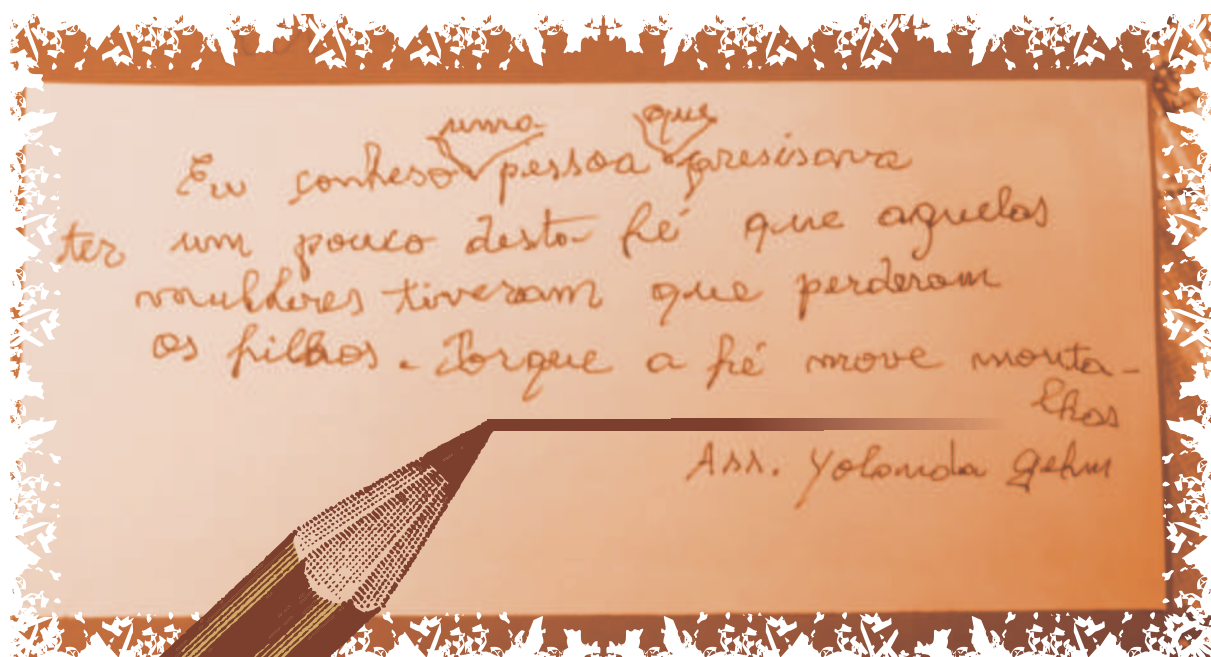 uma que
Eu conheso pessoa presisava
ter um pouco desta fé que aquelas
mulheres tiveram que perderam
os filhos. Porque a fé move monta-
lhas
Ass. Yolanda Gehm